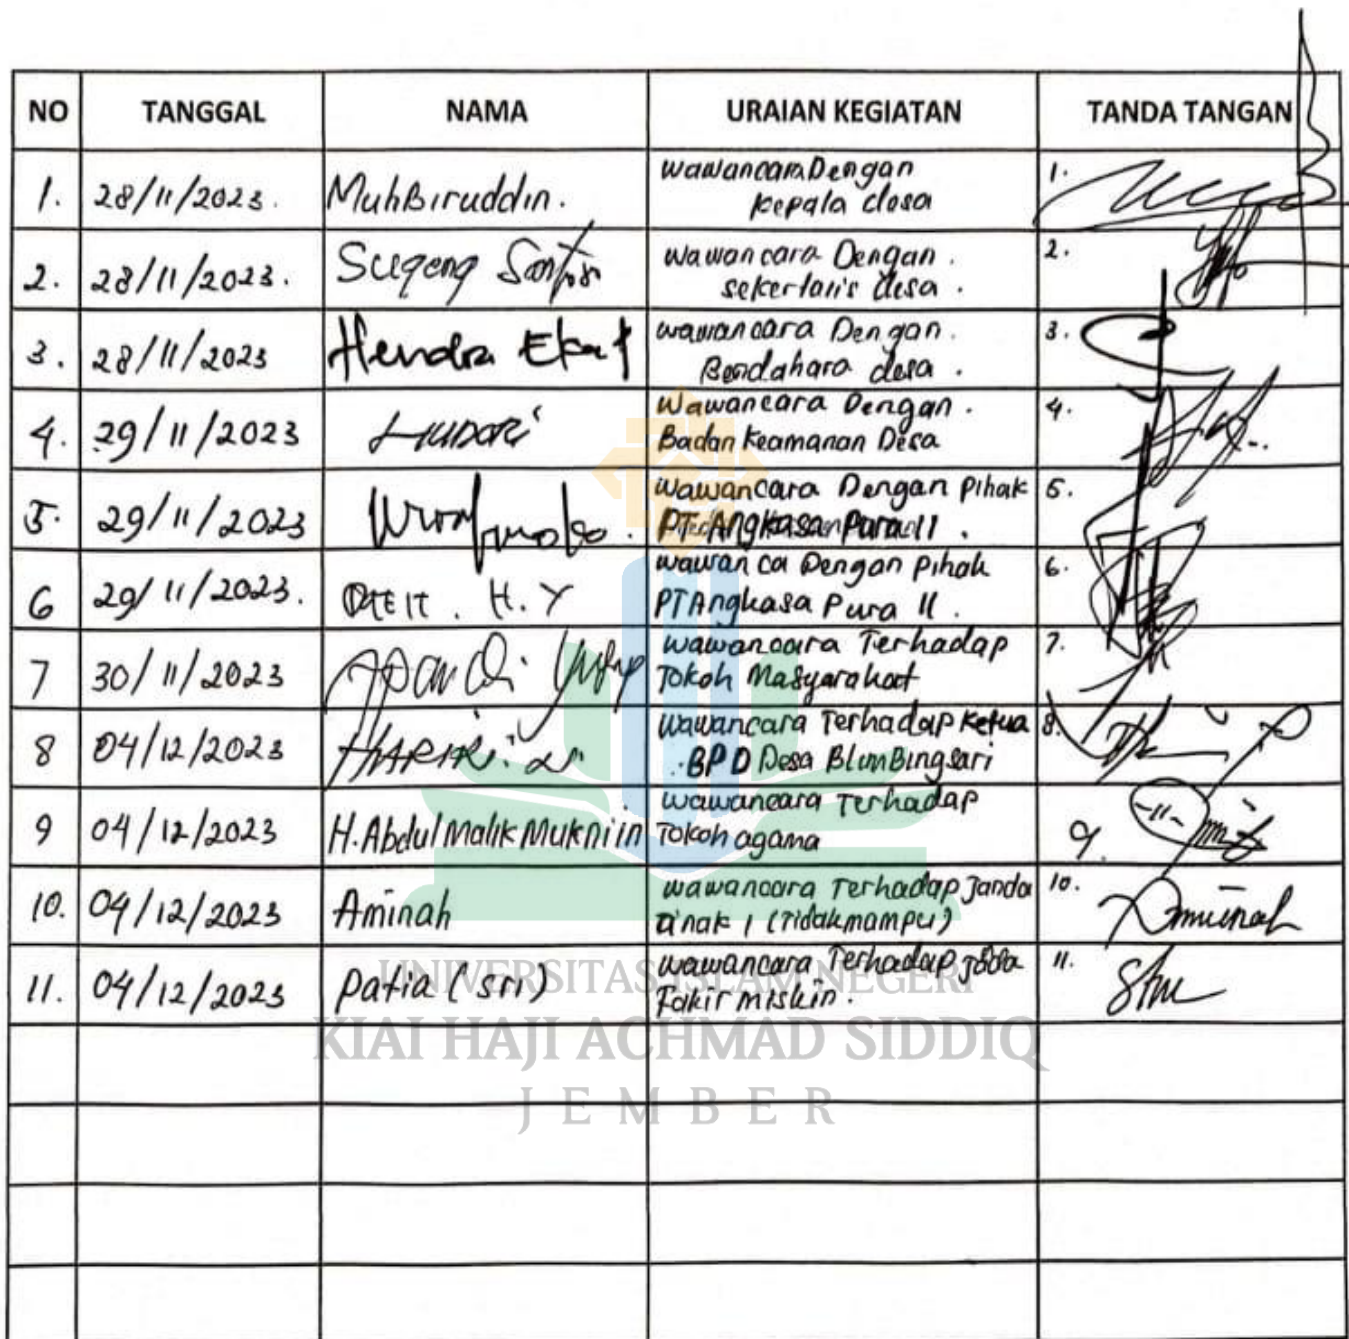 NO TANGGAL NAMA URAIAN KEGIATAN TANDA TANGAN
1. 28/11/2023. MuhBiruddin. wawancara Dengan 1.
kepala desa
2. 28/11/2023. Sugeng Santoso wawancara Dengan. 2.
sekertaris desa.
3. 28/11/2023 Hendra Eka wawancara Dengan. 3.
Bendahara desa.
4. 29/11/2023 HUDORI Wawancara Dengan. 4.
Badan Keamanan Desa
5. 29/11/2023 Wawancara Dengan Pihak 5.
PT Angkasa Pura II.
6 29/11/2023. H. Y wawan ca Dengan Pihak 6.
PT Angkasa Pura II.
7 30/11/2023 wawancara Terhadap 7.
Tokoh Masyarakat
8 04/12/2023 HARIRI wawancara Terhadap Ketua 8.
BPD Desa BlimBingsari
9 04/12/2023 H. Abdul Malik Mukniin wawancara Terhadap 9.
Tokoh agama
10. 04/12/2023 Aminah wawancara Terhadap Janda 10. Aminah
anak 1 (Tidak mampu)
11. 04/12/2023 Patia (sri) wawancara Terhadap 11.
Fakir miskin.
UNIVERSITAS ISLAM NEGERI
KIAI HAJI ACHMAD SIDDIQ
JEMBER